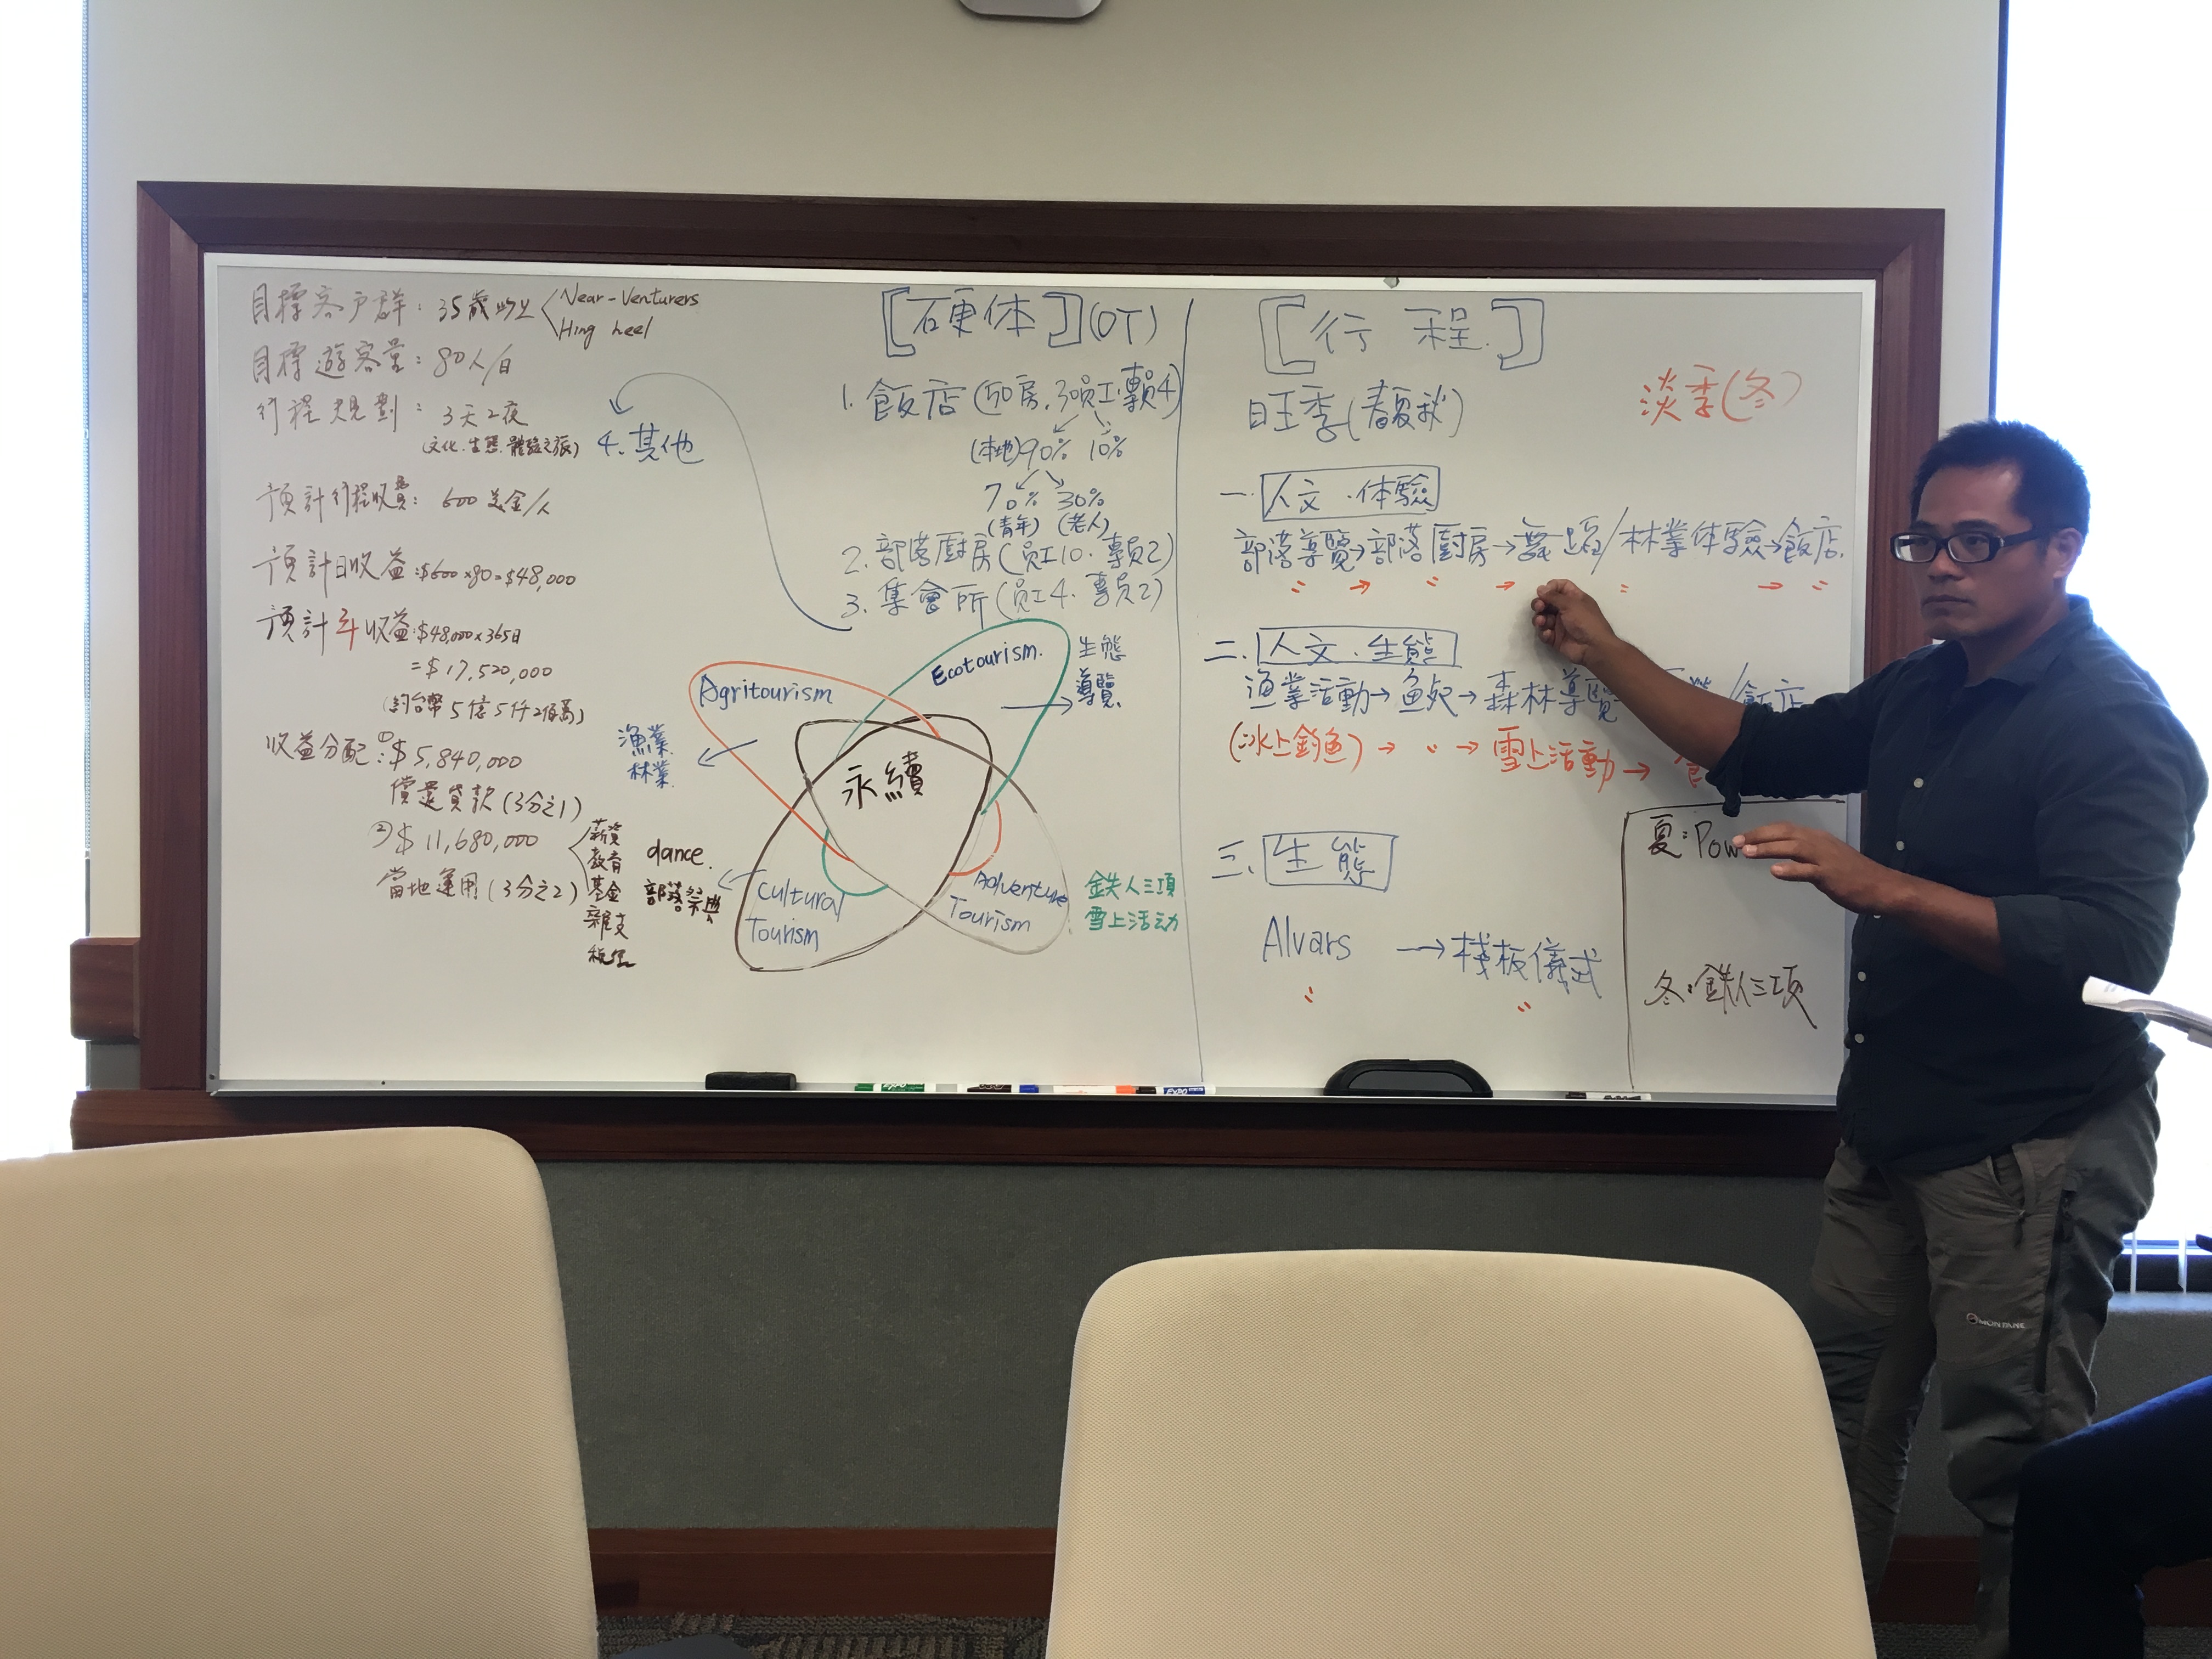 目標客戶群：35歲以上
Near-Venturers
Hing heel
目標遊客量：80人/日
行程規劃：3天2夜
(文化.生態.體驗之旅)
預計行程收費：600美金/人
預計日收益：$600×80=$48,000
預計年收益：$48,000×365日
=$17,520,000
(約台幣5億5仟2佰萬)
收益分配：①$5,840,000
償還貸款(3分之1)
②$11,680,000
當地運用(3分之2)
薪資
教育
基金
雜支
[硬体](OT)
1.飯店(50房.30員工.專員4)
(本地)90% 10%
70% 30%
(青年) (老人)
2.部落廚房(員工10.專員2)
3.集會所(員工4.專員2)
4.其他
Agritourism
Ecotourism.
永續
Cultural
Tourism
Adventure
Tourism
生態
導覽
漁業
林業
dance.
部落祭典
鉄人三項
雪上活动
[行程]
旺季(春夏秋)
淡季(冬)
一.人文.体驗
部落導覽→部落廚房→舞蹈/林業体驗→飯店.
〃 → 〃 → 〃 → 〃
二.人文.生態
漁業活動→魚→森林導覽 /飯店
(冰上釣魚)→ 〃 →雪上活動→
三.生態
Alvars →棧板儀式
〃 〃
夏:Pow
冬:鉄人三項
EXPO
EXPO
MONTANE